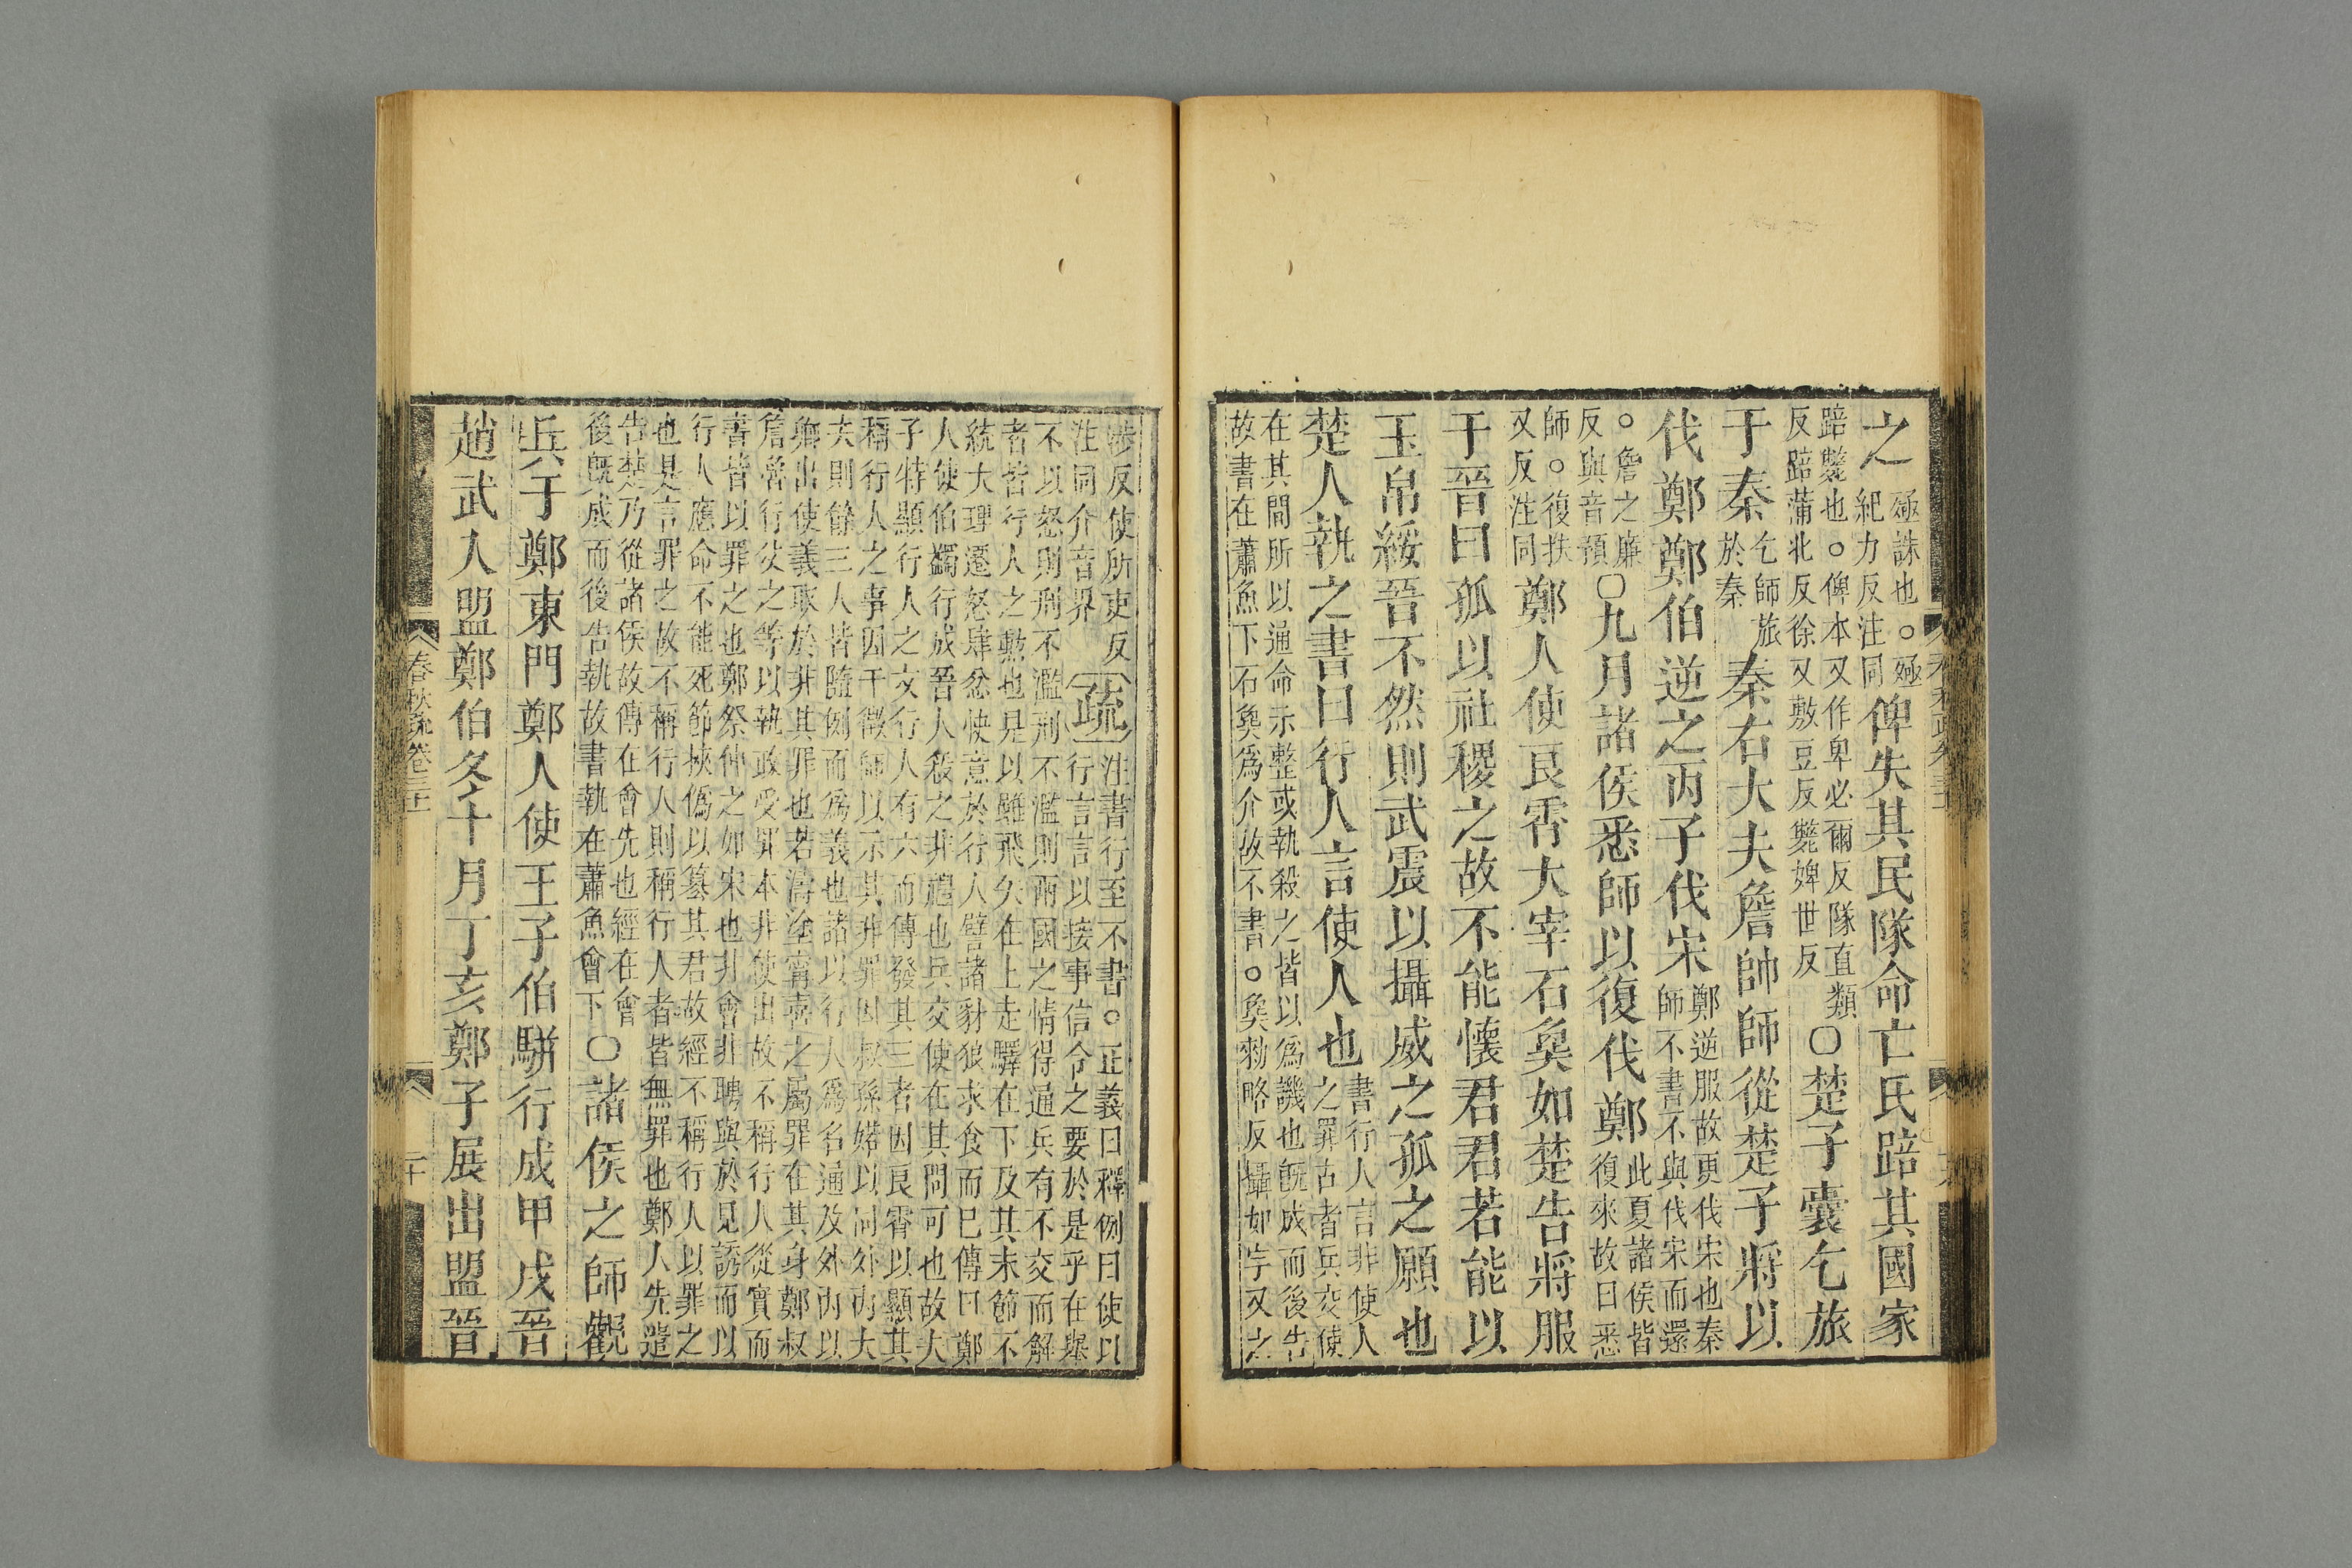 之殛誅也。殛
紀力反注同
俾失其民隊命亡氏踣其國家
踣斃也。俾本又作卑必爾反隊直類
反踣蒲北反徐又敷豆反斃婢世反
○楚子囊乞旅
于秦
乞師旅
於秦
秦右大夫詹帥師從楚子將以
伐鄭鄭伯逆之丙子伐宋
鄭逆服故更伐宋也秦
師不書不與伐宋而還
。詹之廉
反與音預
○九月諸侯悉師以復伐鄭
此夏諸侯皆
復來故曰悉
師。復扶
又反注同
鄭人使良霄大宰石㚟如楚告將服
于晉曰孤以社稷之故不能懷君君若能以
玉帛綏晉不然則武震以攝威之孤之願也
楚人執之書曰行人言使人也
書行人言非使人
之罪古者兵交使
在其間所以通命示整或執殺之皆以爲譏也旣成而後告
故書在蕭魚下石㚟爲介故不書。㚟勑略反攝如字又之
涉反使所吏反
注同介音界
疏
注書行至不書。正義曰釋例曰使以
行言言以接事信令之要於是乎在舉
不以怒則刑不濫刑不濫則兩國之情得通兵有不交而解
者皆行人之勲也是以雖飛矢在上走驛在下及其末節不
統大理遷怒肆忿快意於行人譬諸豺狼求食而已傳曰鄭
人使伯蠲行成晉人殺之非禮也兵交使在其間可也故大
子特顯行人之文行人有六而傳發其三者因良霄以顯其
稱行人之事因干徵師以示其非罪因叔孫婼以同外內大
夫則餘三人皆隨例而爲義也諸以行人爲名通及外內以
卿出使義取於非其罪也若濤塗甯喜之屬罪在其身鄭叔
詹魯行父之等以執政受罪本非使出故不稱行人從實而
書皆以罪之也鄭祭仲之如宋也非會非聘與於見誘而以
行人應命不能死節挾僞以簒其君故經不稱行人以罪之
也是言罪之故不稱行人則稱行人者皆無罪也鄭人先遣
告楚乃從諸侯故傳在會先也經在會
後旣成而後告執故書執在蕭魚會下
○諸侯之師觀
兵于鄭東門鄭人使王子伯駢行成甲戌晉
趙武入盟鄭伯冬十月丁亥鄭子展出盟晉
春秋疏卷三十一
二十